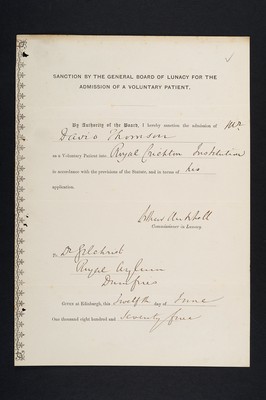 SANCTION BY THE GENERAL BOARD OF LUNACY FOR THE
ADMISSION OF A VOLUNTARY PATIENT.
By Authority of the Board, I hereby sanction the admission of Mr.
David Thomson
as a Voluntary Patient into Royal Crichton Institution
in accordance with the provisions of the Statute, and in terms of his
application.
Commissioner in Lunacy.
To Dr Gilchrist
Royal Asylum
Dumfries
GIVEN at Edinburgh, this twelfth day of June
One thousand eight hundred and seventy five